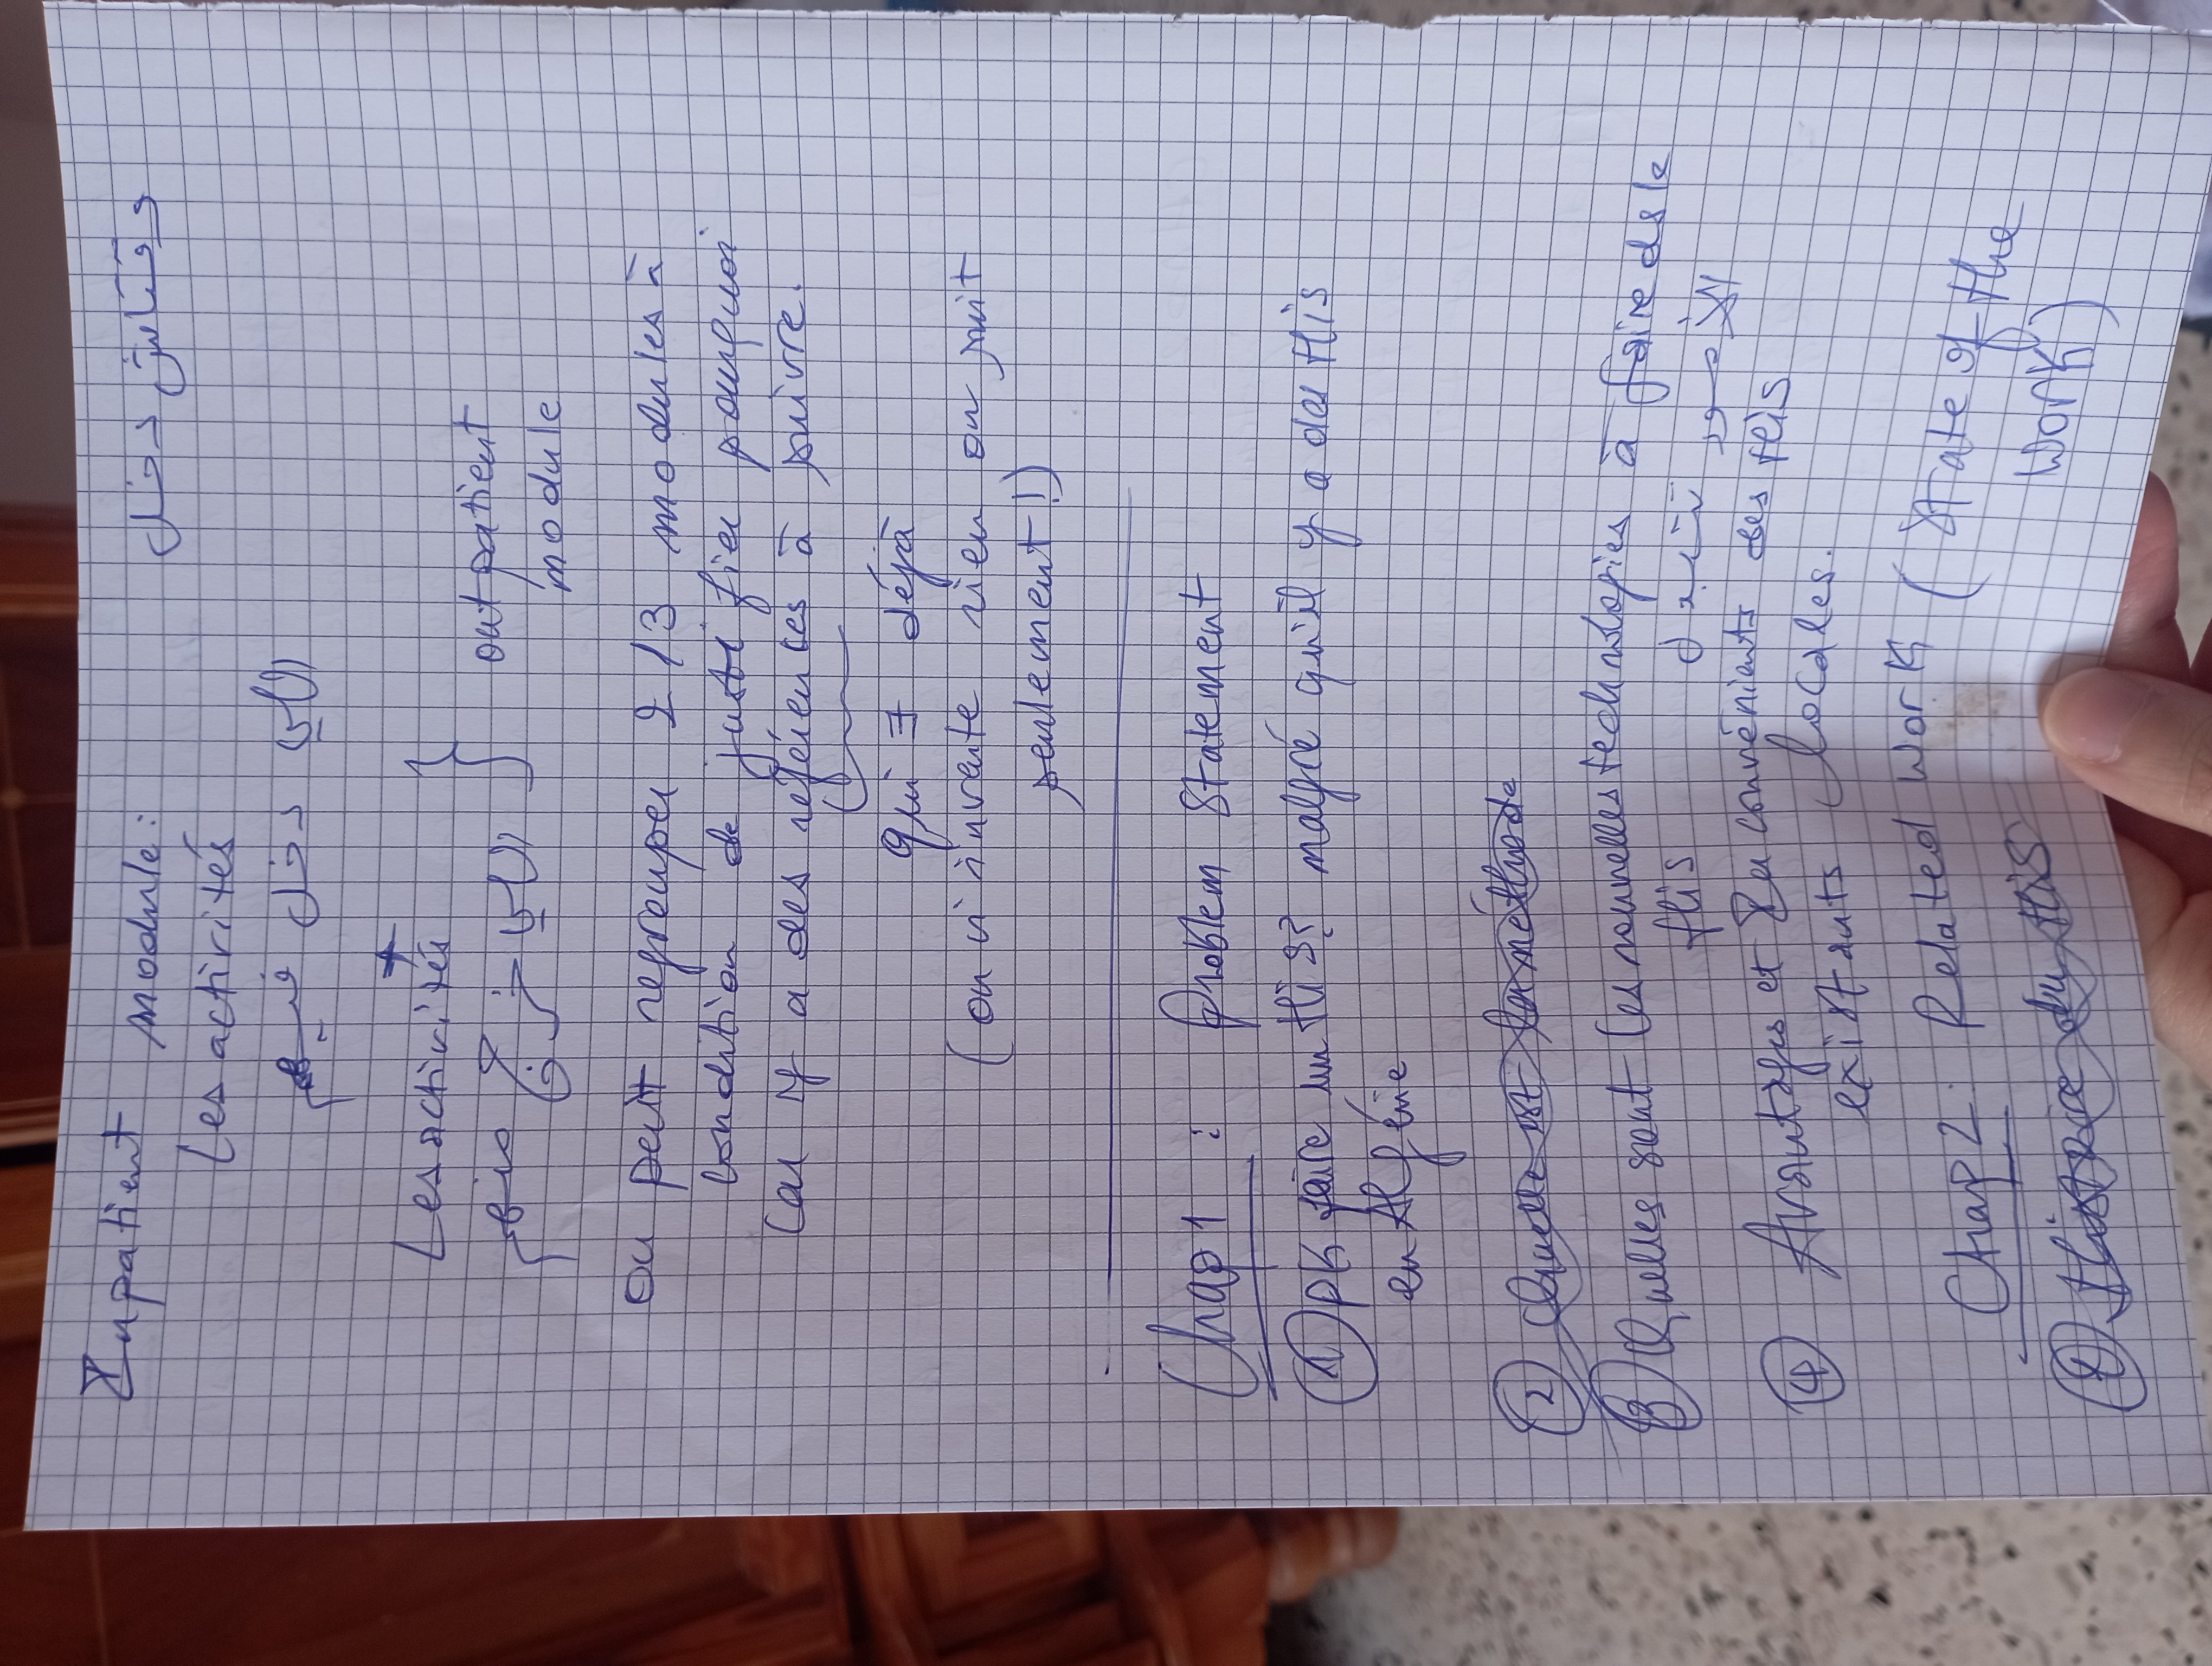 Inpatient module: وقتاش دخل
Les activités
اللي دخل فيهم
+
Les activités
اللي خرج منهم } outpatient
module
on peut regrouper 2/3 modules à
condition de justifier pourquoi
Car y a des références à suivre.
qui ∃ déjà
(on n'invente rien on suit
seulement!)
Chap 1 : Problem Statement
① pk faire un His? malgré qu'il y a des His
en Algérie
② Quelle est la méthode
③ Quelles sont les nouvelles technologies à faire ds le
His
④ Avantages et Inconvénients des His
existants locales.
Chap 2: Related Work (State of the
Work)
① Histoire du His